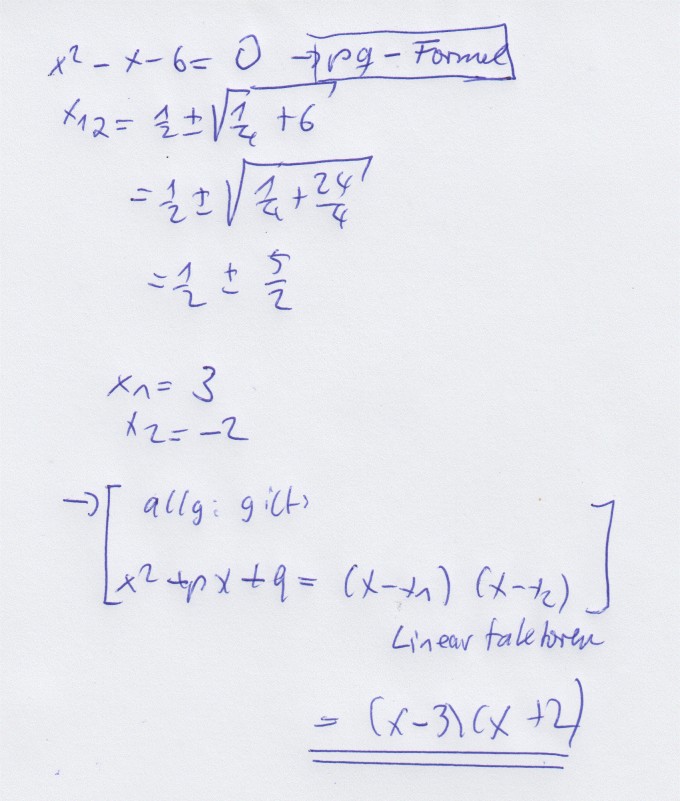 x² - x - 6 = 0 → pq - Formel
x₁₂ = 1/2 ± √(1/4 + 6)
= 1/2 ± √(1/4 + 24/4)
= 1/2 ± 5/2
x₁ = 3
x₂ = -2
→ [ allg: gilt:
x² + px + q = (x-x₁) (x-x₂) ]
Linearfaktoren
= (x-3)(x+2)